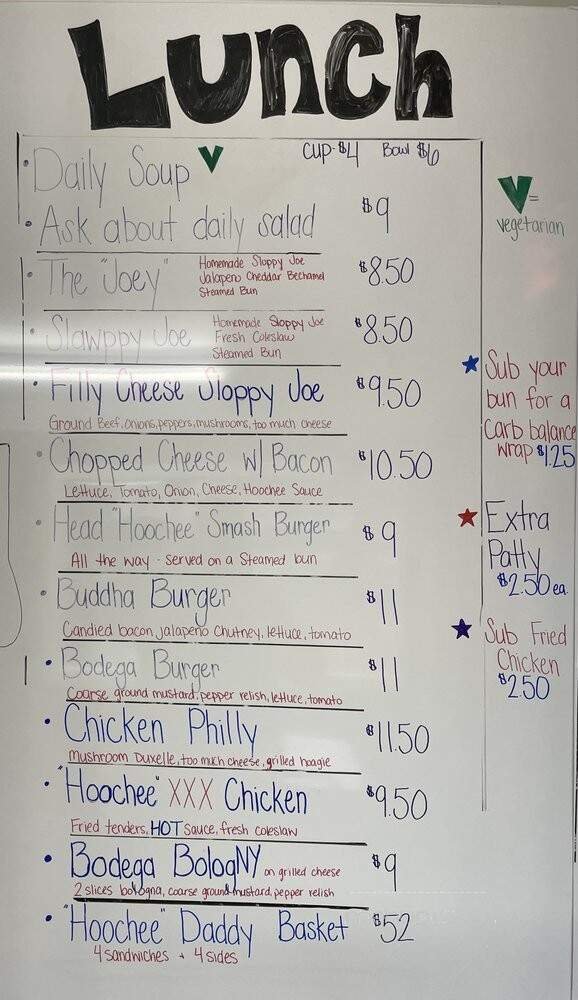 Lunch
• Daily Soup V Cup-$4 Bowl $6
• Ask about daily salad $9
• The "Joey" $8.50
Homemade Sloppy Joe
Jalapeño Cheddar Bechamel
Steamed Bun
• Slawppy Joe $8.50
Homemade Sloppy Joe
Fresh Coleslaw
Steamed Bun
• Filly Cheese Sloppy Joe $9.50
Ground Beef, onions, peppers, mushrooms, too much cheese
• Chopped Cheese w/ Bacon $10.50
Lettuce, Tomato, Onion, Cheese, Hoochee Sauce
• Head "Hoochee" Smash Burger $9
All the way - served on a Steamed bun
• Buddha Burger $11
Candied bacon, jalapeno chutney, lettuce, tomato
• Bodega Burger $11
Coarse ground mustard, pepper relish, lettuce, tomato
• Chicken Philly $11.50
Mushroom Duxelle, too much cheese, grilled hoagie
• "Hoochee" XXX Chicken $9.50
Fried tenders, HOT Sauce, fresh coleslaw
• Bodega BologNY on grilled cheese $9
2 slices bologna, coarse ground mustard, pepper relish
• "Hoochee" Daddy Basket $52
4 sandwiches + 4 sides
V =
vegetarian
★ Sub your
bun for a
Carb balance
wrap $1.25
★ Extra
Patty
$2.50 ea.
★ Sub Fried
Chicken
$2.50